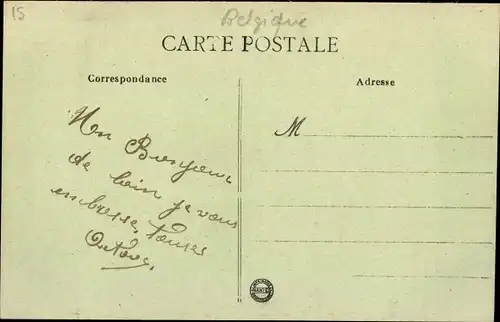 15
Belgique
CARTE POSTALE
Correspondance
Adresse
M
Un Bonjour
de loin je vous
embrasse toutes